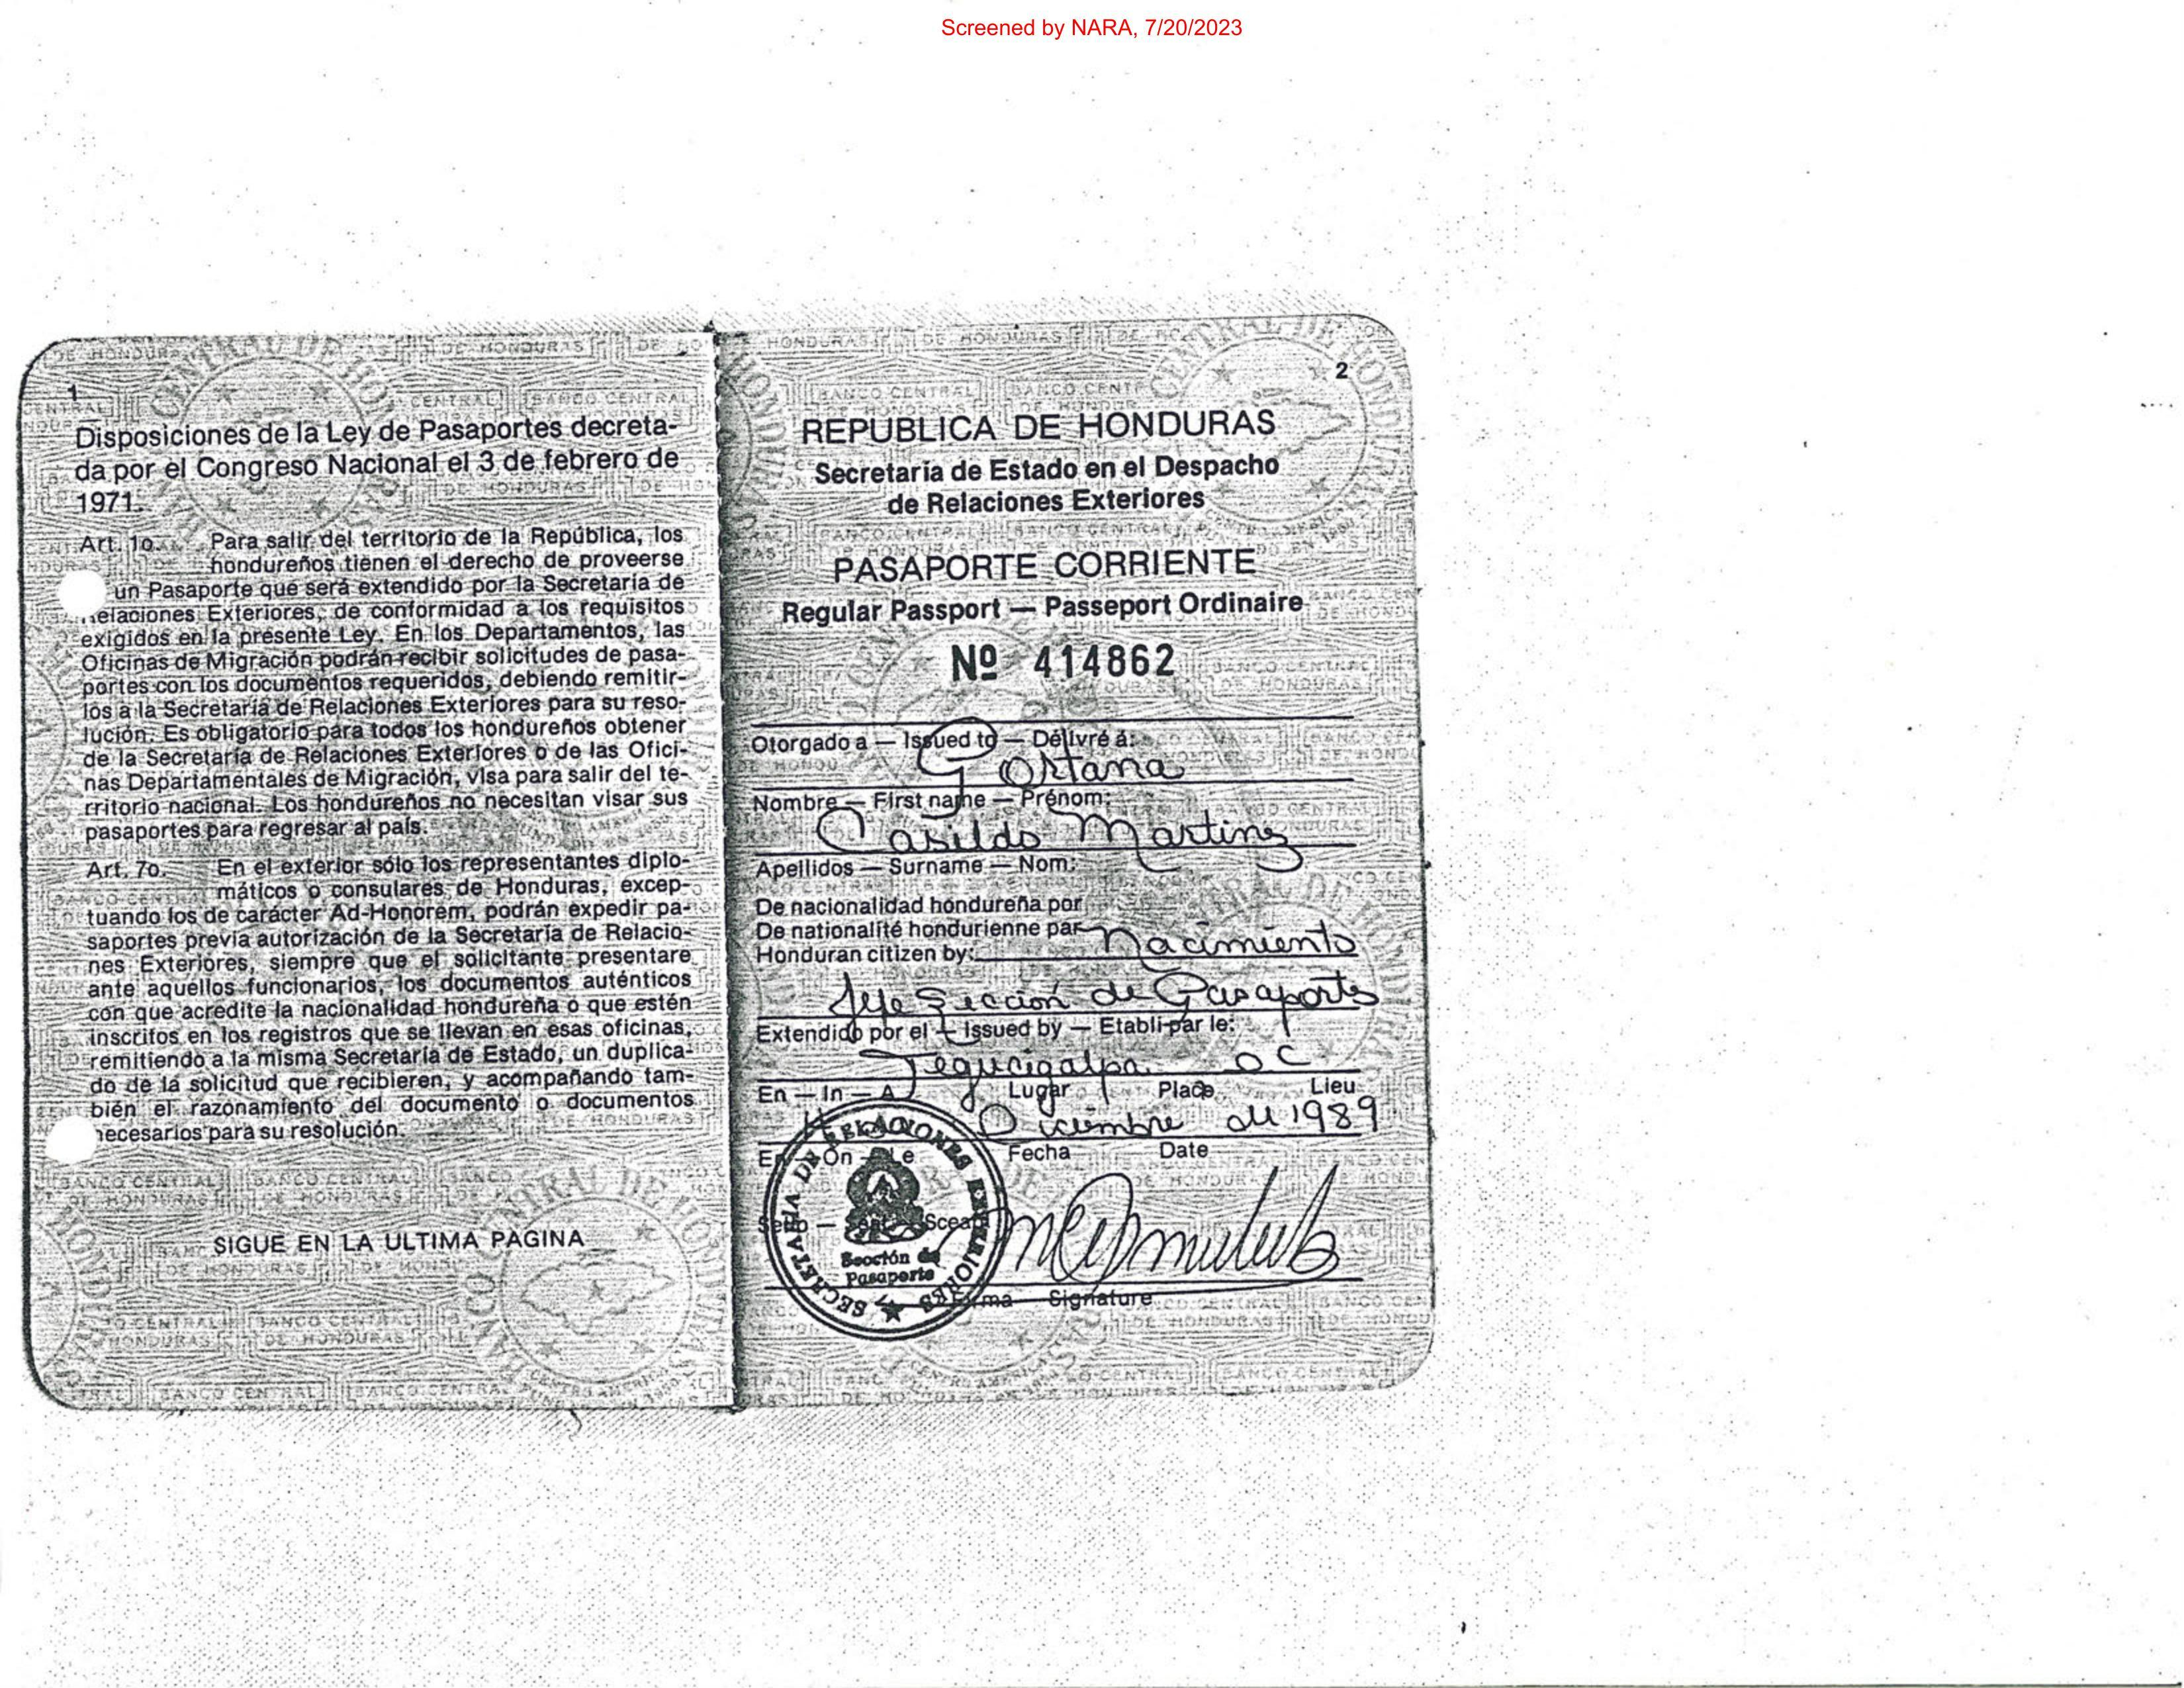 Screened by NARA, 7/20/2023
1
Disposiciones de la Ley de Pasaportes decreta-
da por el Congreso Nacional el 3 de febrero de
1971.
Art. 1o. Para salir del territorio de la República, los
hondureños tienen el derecho de proveerse
un Pasaporte que será extendido por la Secretaría de
elaciones Exteriores, de conformidad a los requisitos
exigidos en la presente Ley. En los Departamentos, las
Oficinas de Migración podrán recibir solicitudes de pasa-
portes con los documentos requeridos, debiendo remitir-
los a la Secretaría de Relaciones Exteriores para su reso-
lución. Es obligatorio para todos los hondureños obtener
de la Secretaría de Relaciones Exteriores o de las Ofici-
nas Departamentales de Migración, visa para salir del te-
rritorio nacional. Los hondureños no necesitan visar sus
pasaportes para regresar al país.
Art. 7o. En el exterior sólo los representantes diplo-
máticos o consulares de Honduras, excep-
tuando los de carácter Ad-Honorem, podrán expedir pa-
saportes previa autorización de la Secretaría de Relacio-
nes Exteriores, siempre que el solicitante presentare
ante aquéllos funcionarios, los documentos auténticos
con que acredite la nacionalidad hondureña o que estén
inscritos en los registros que se llevan en esas oficinas,
remitiendo a la misma Secretaría de Estado, un duplica-
do de la solicitud que recibieren, y acompañando tam-
bién el razonamiento del documento o documentos
necesarios para su resolución.
SIGUE EN LA ULTIMA PAGINA
2
REPUBLICA DE HONDURAS
Secretaría de Estado en el Despacho
de Relaciones Exteriores
PASAPORTE CORRIENTE
Regular Passport — Passeport Ordinaire
Nº 414862
Otorgado a — Issued to — Délivré à:
Nombre — First name — Prénom:
Casildo Martinez
Apellidos — Surname — Nom:
De nacionalidad hondureña por
De nationalité hondurienne par
Honduran citizen by: Nacimiento
Jefe Sección de Pasaportes
Extendido por el — Issued by — Etabli par le:
Tegucigalpa DC
En — In — A Lugar Place Lieu
Diciembre de 1989
En — On — Le Fecha Date
Sello — Seal — Sceau
SECRETARIA DE RELACIONES EXTERIORES
Sección de
Pasaporte
Firma — Signature